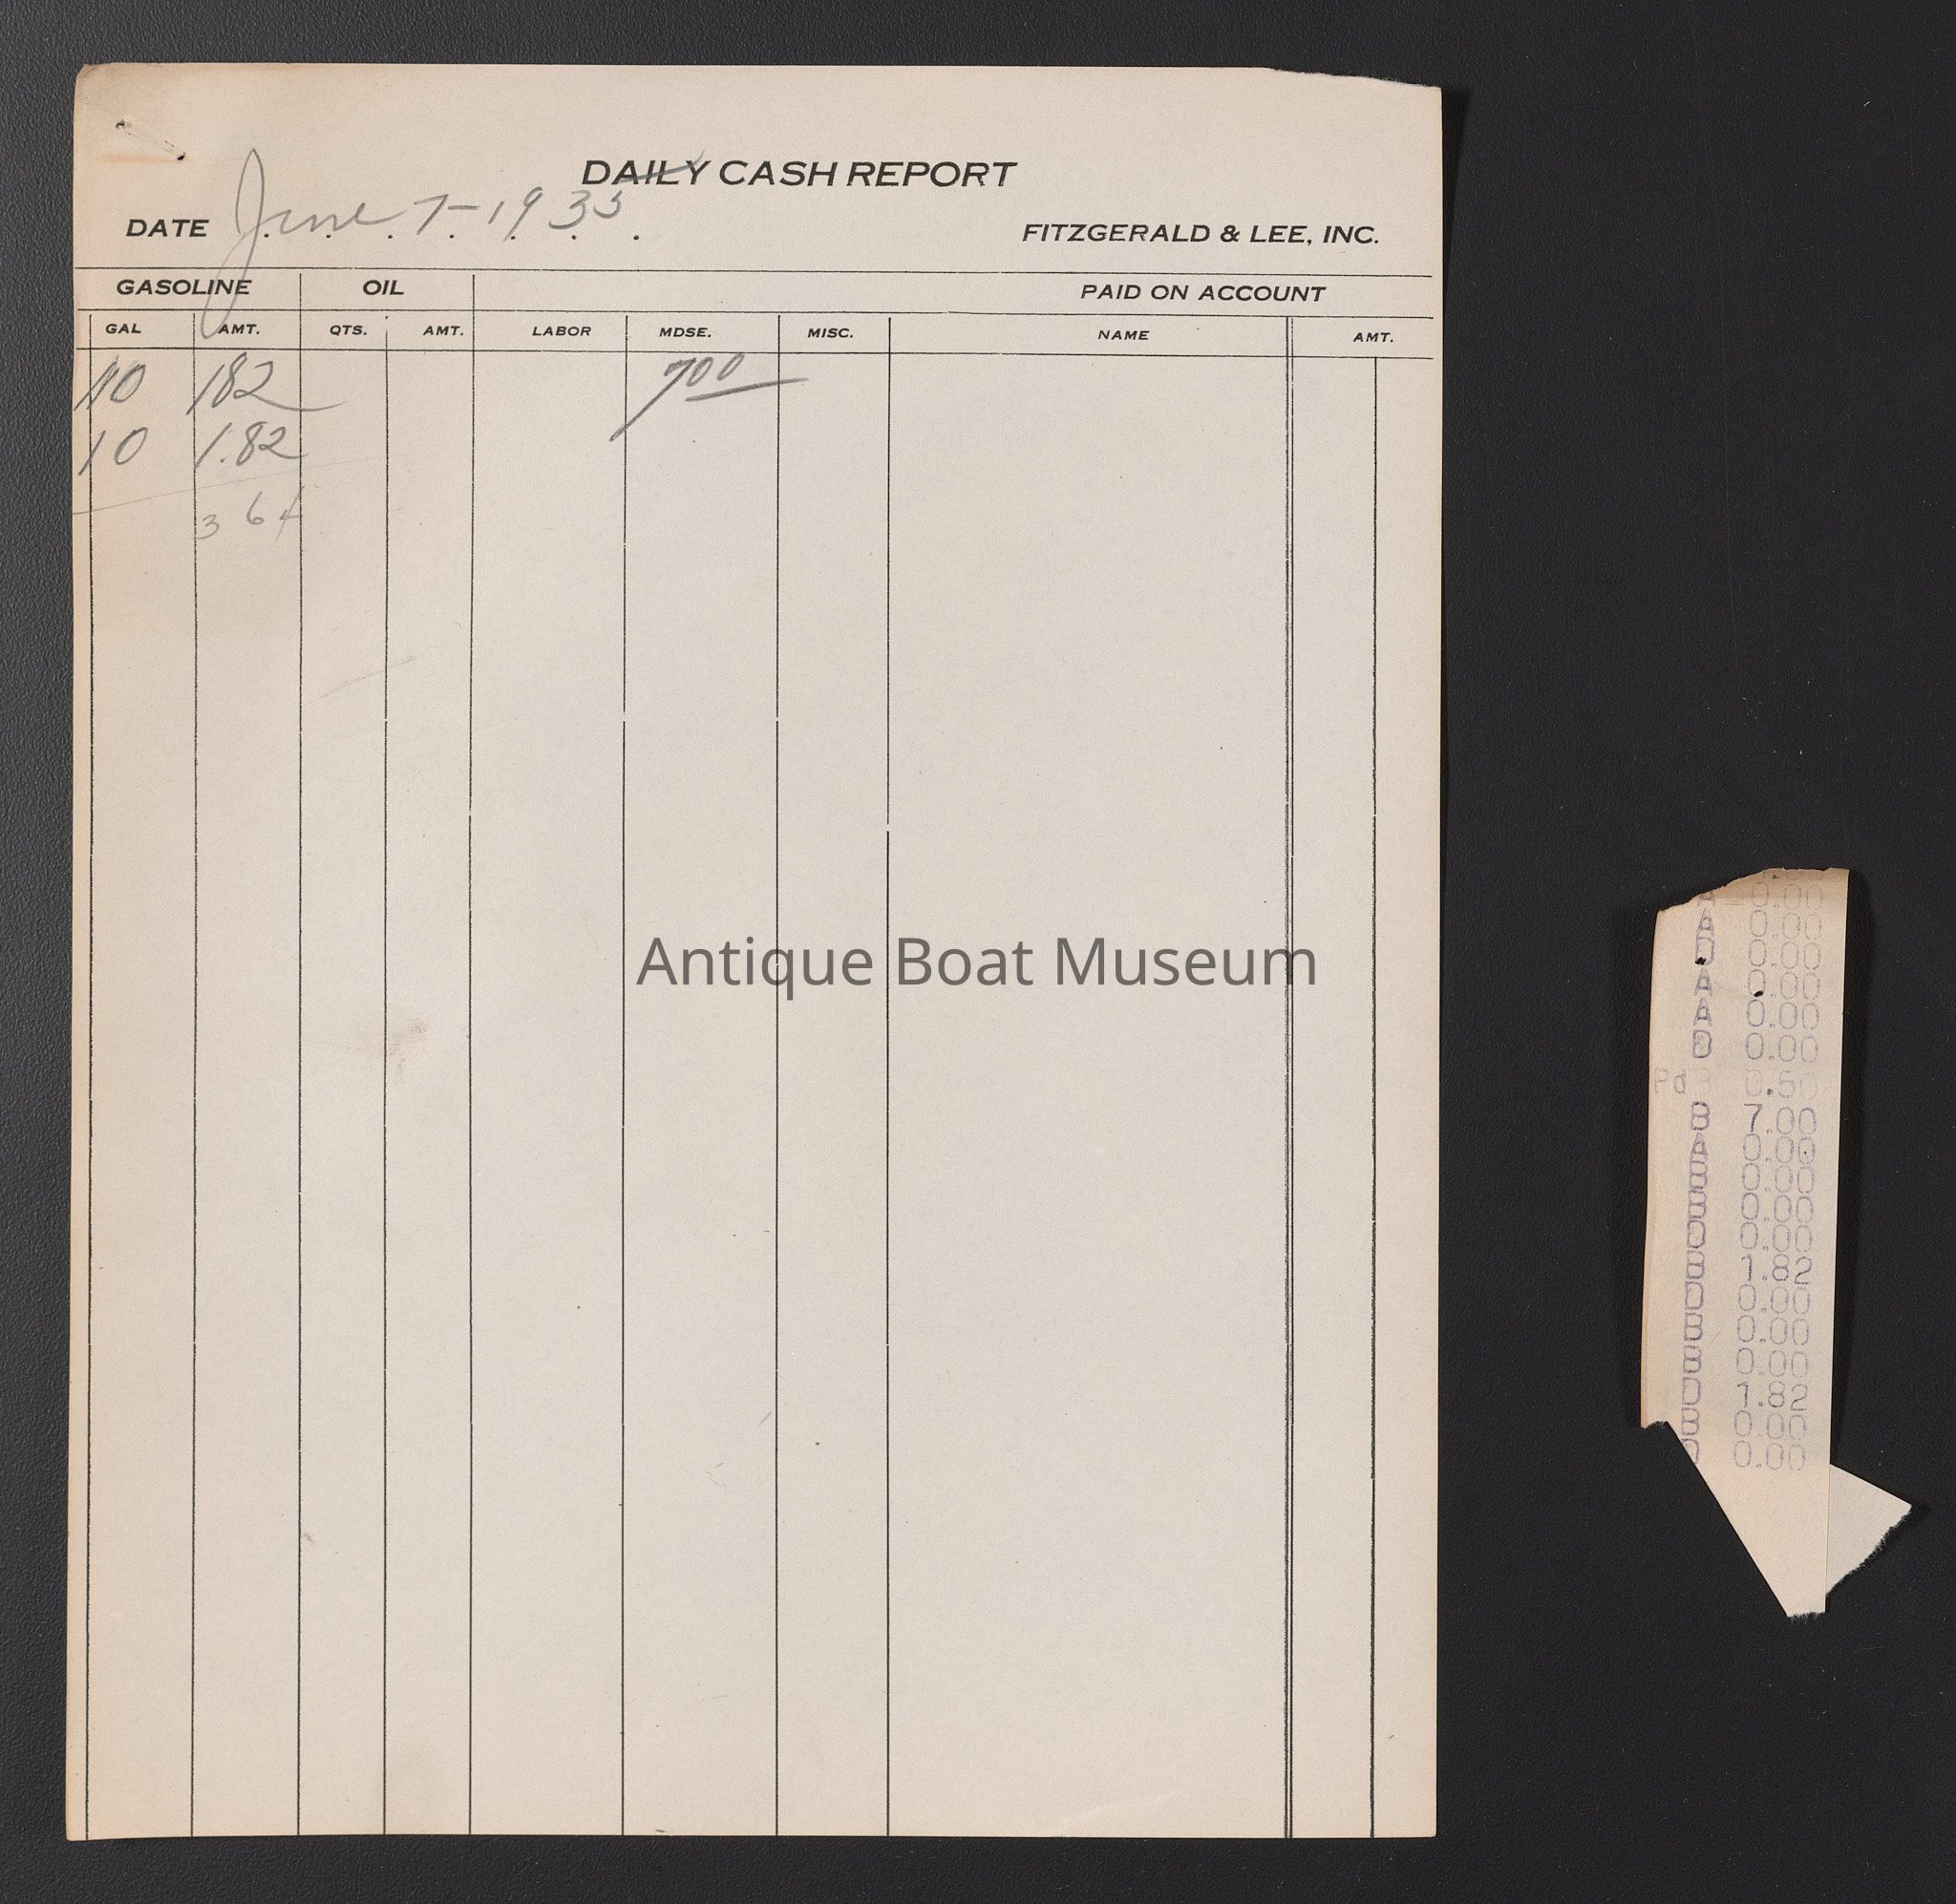 DAILY CASH REPORT
DATE June 7-1935
FITZGERALD & LEE, INC.
GASOLINE OIL PAID ON ACCOUNT
GAL AMT. QTS. AMT. LABOR MDSE. MISC. NAME AMT.
10 182 700
10 1.82
3 64
Antique Boat Museum
A 0.00
A 0.00
D 0.00
A 0.00
A 0.00
D 0.00
Pd 0.50
B 7.00
A 0.00
B 0.00
B 0.00
D 0.00
B 1.82
D 0.00
B 0.00
B 0.00
D 1.82
B 0.00
D 0.00